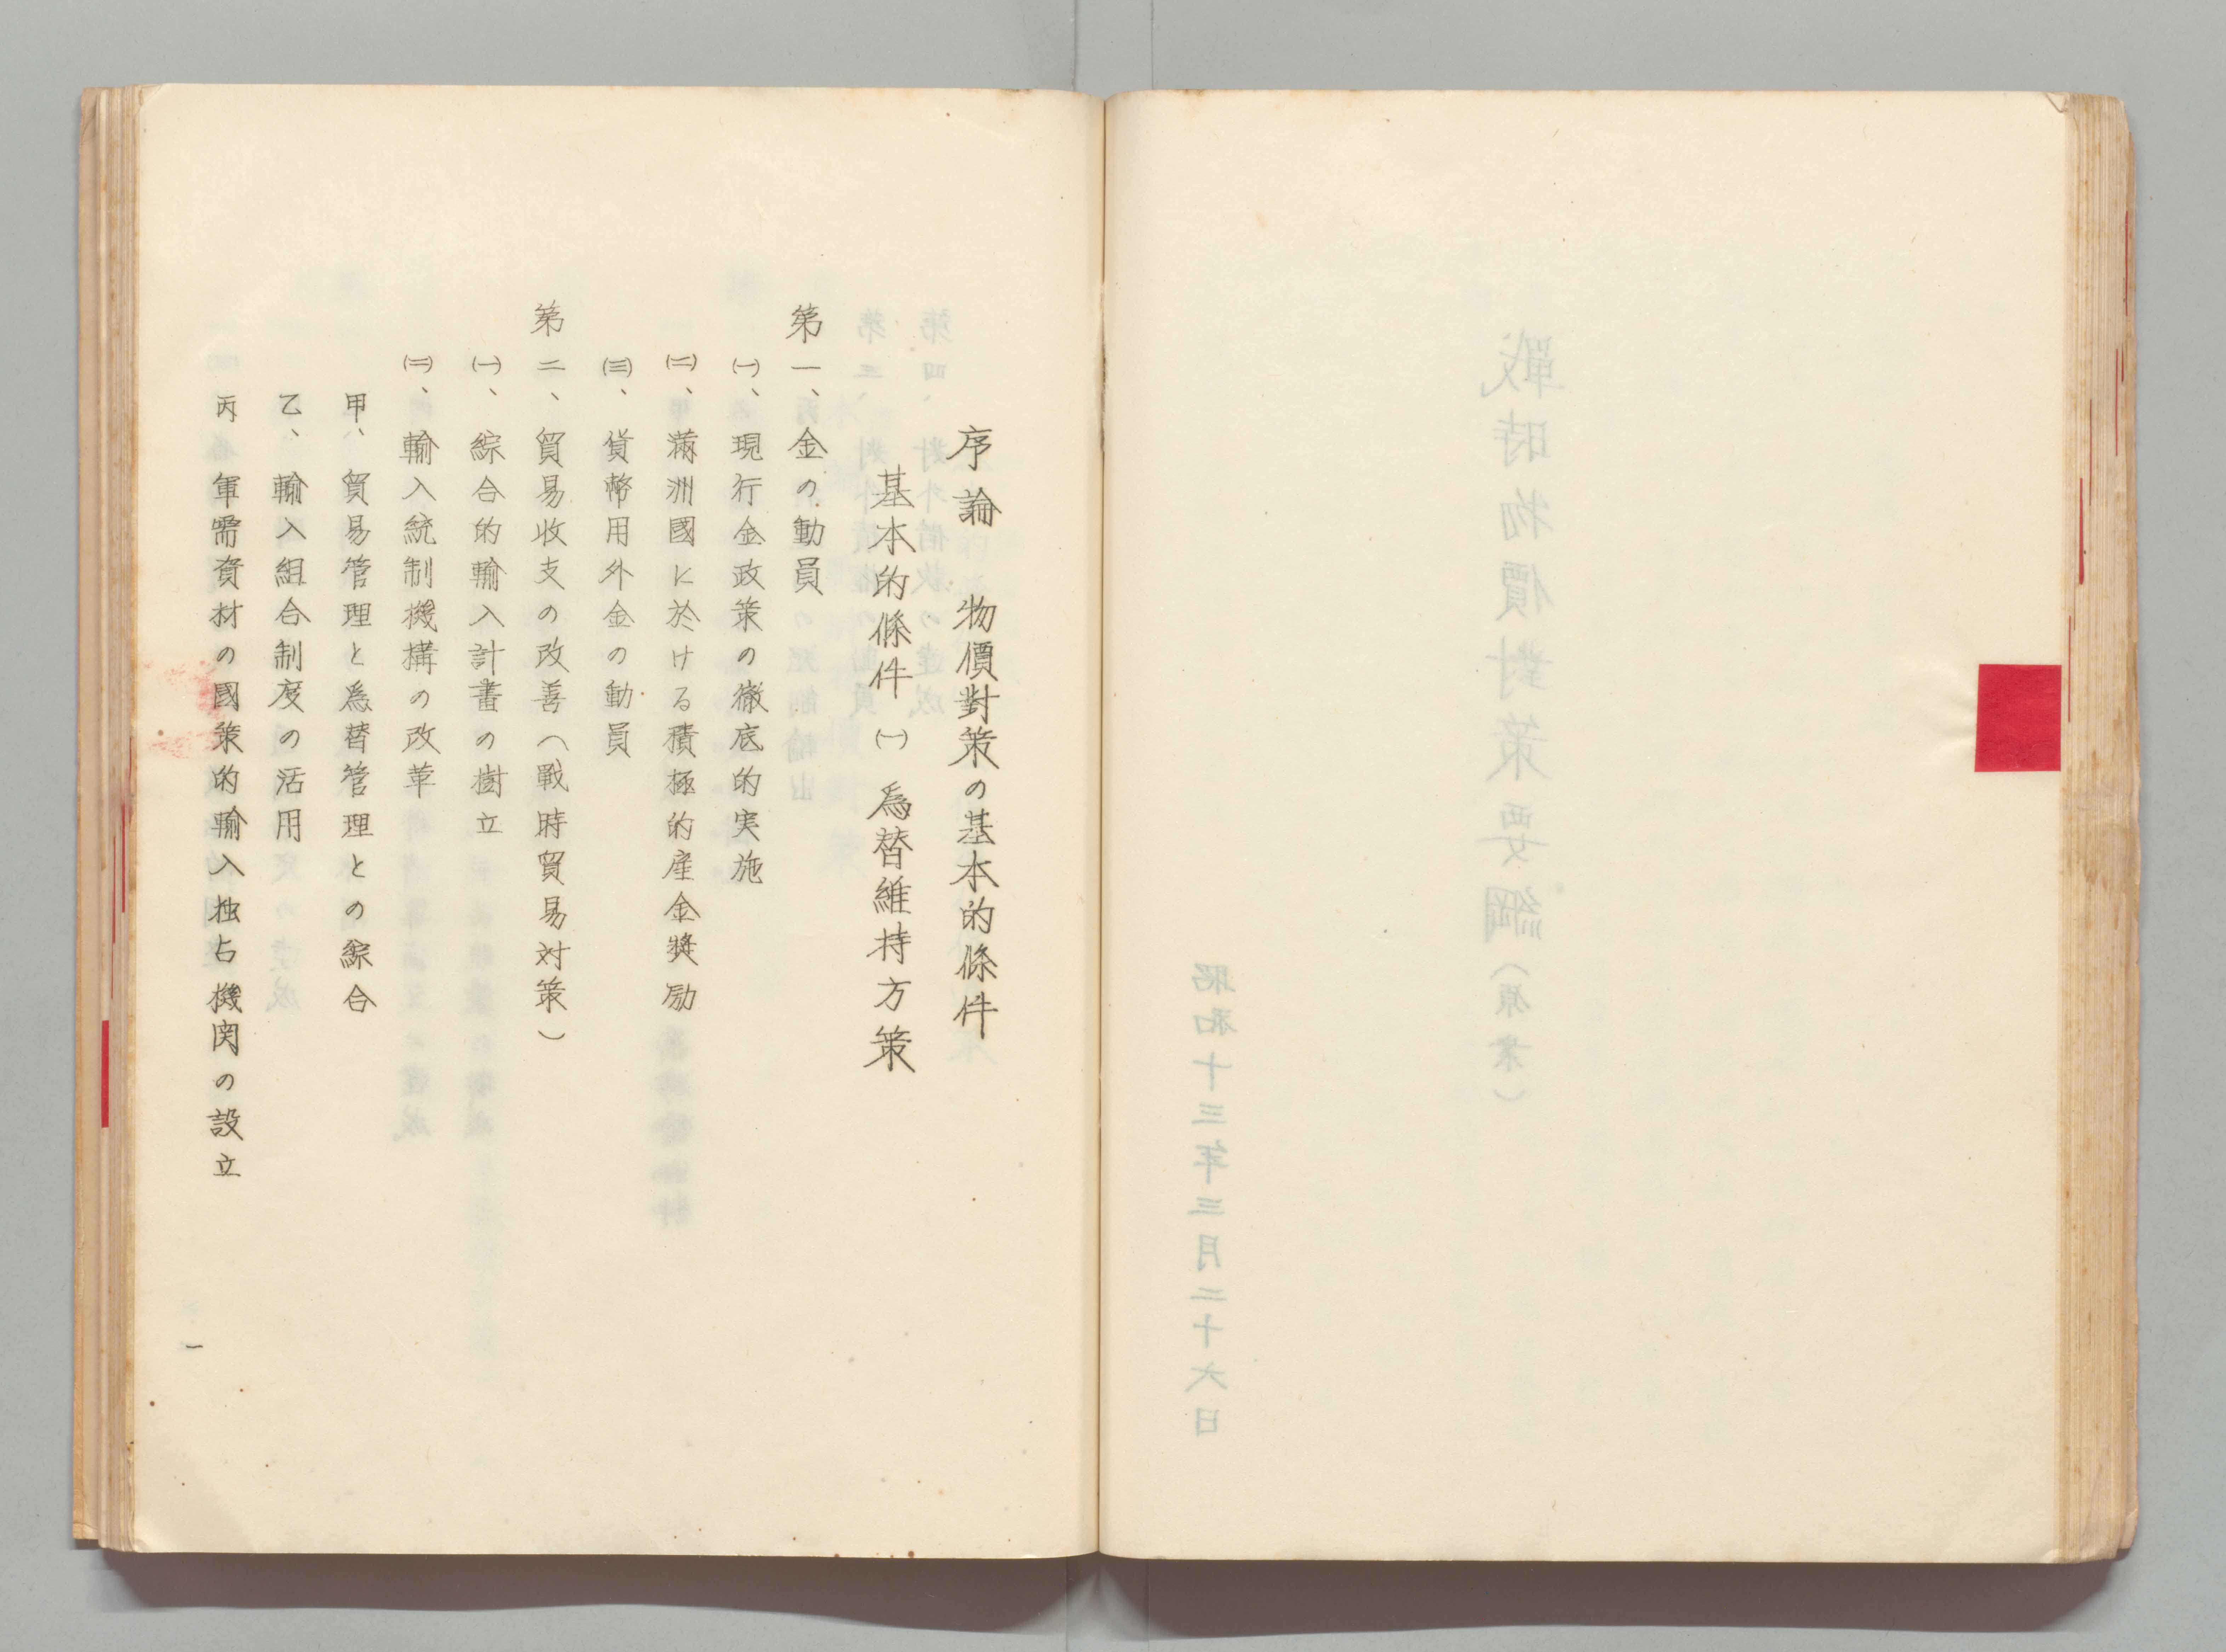 戰時物價對策要綱（原案）
昭和十三年三月二十六日
序論　物價對策の基本的條件
基本的條件㈠　爲替維持方策
第一、金の動員
㈠、現行金政策の徹底的実施
㈡、滿洲國に於ける積極的産金奬励
㈢、貨幣用外金の動員
第二、貿易收支の改善（戰時貿易対策）
㈠、綜合的輸入計畫の樹立
㈡、輸入統制機構の改革
甲、貿易管理と爲替管理との綜合
乙、輸入組合制度の活用
丙　軍需資材の國策的輸入独占機関の設立
一